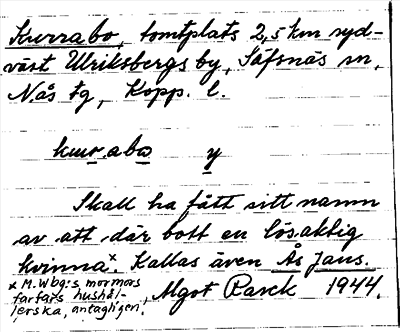 Kurrabo, tomtplats 2,5 km syd-
väst Ulriksbergs by, Säfsnäs sn,
Nås tg, Kopp. l.
kur.abω y
Skall ha fått sitt namn
av att där bott en lösaktig
kvinna.ˣ Kallas även Ås Jans.
x M. Wbg:s mormors
farfars hushål-
lerska, antagligen.
Algot 1944.